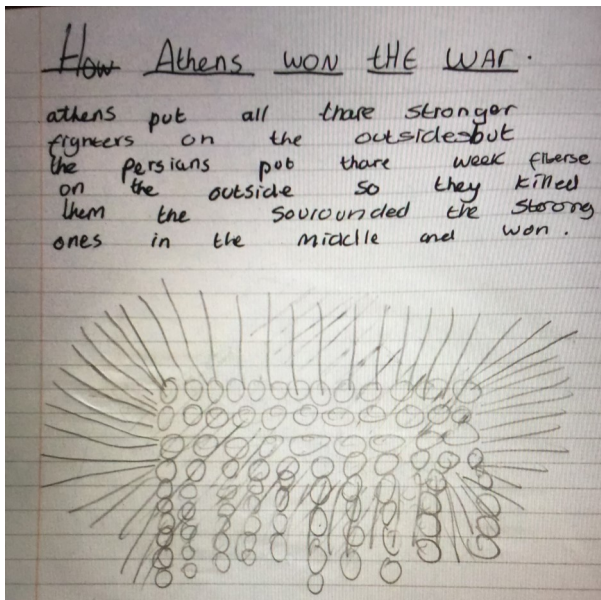 How Athens WON tHE WAR.
athens put all thare stronger
fighters on the outside but
the Persians put thare week fiberse
on the outside so they killed
them the sourounded the strong
ones in the middle and won.